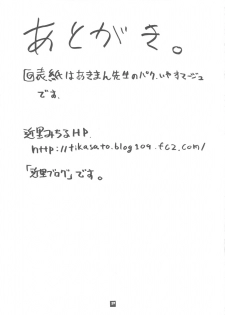 あとがき。
回表紙はあきまん先生のパク、いやオマージュ
です.
近里みちるHP.
http://tikasato.blog109.fc2.com/
「近里ブログ」です。